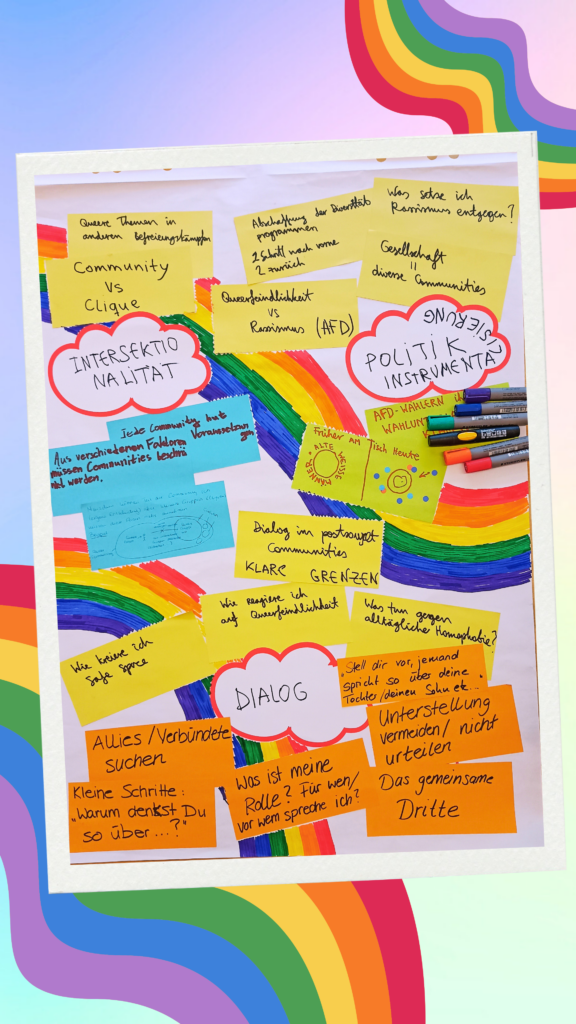 Queere Themen in
anderen Befreiungskämpfen
Community
vs
Clique
Abschaffung der Diversitäts
programmen
1 Schritt nach vorne
2 zurück
Queerfeindlichkeit
vs
Rassismus (AFD)
Was setze ich
Rassismus entgegen?
Gesellschaft
=
diverse Communities
INTERSEKTIO
NALITÄT
POLITIK
INSTRUMENTA
LISIERUNG
Jede Community hat
Aus verschiedenen Faktoren Voraussetzungen
müssen Communities beschrä
nkt werden.
AFD-WÄHLERN
WAHLUN
Früher am Tisch Heute
ALTE WEISSE MÄNNER
Dialog im postsowjet
Communities
KLARE GRENZEN
Wie reagiere ich
auf Queerfeindlichkeit
Was tun gegen
alltägliche Homophobie?
Wie kreiere ich
Safe space
DIALOG
"Stell dir vor, jemand
spricht so über deine
Tochter/deinen Sohn etc..."
Allies/Verbündete
suchen
Unterstellung
vermeiden/nicht
urteilen
Kleine Schritte:
"Warum denkst Du
so über ...?"
Was ist meine
Rolle? Für wen/
vor wem spreche ich?
Das gemeinsame
Dritte